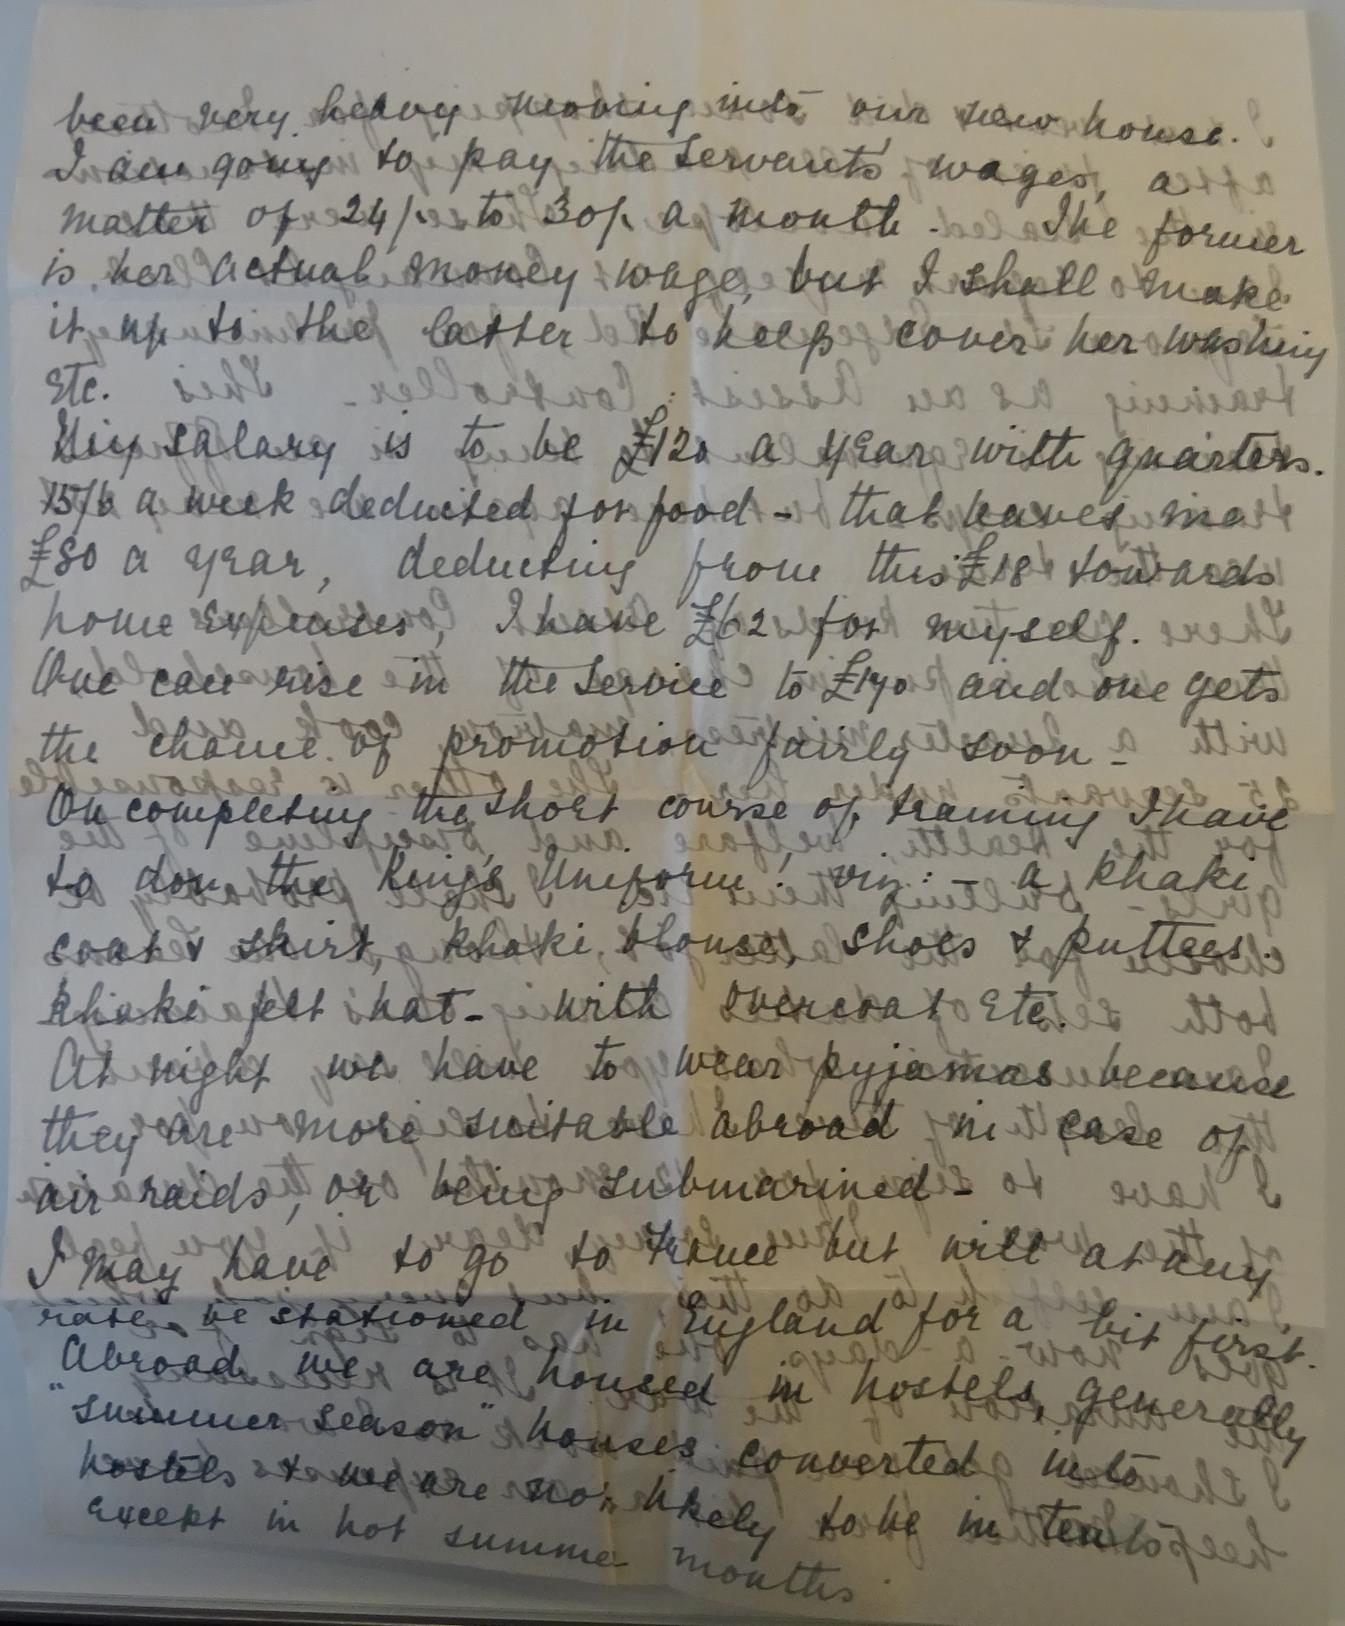 been very heavy moving into our new house.
I am going to pay the servants' wages, a
matter of 24/- to 30/- a month. The former
is her actual money wage, but I shall make
it up to the latter to help cover her washing
etc.
My salary is to be £120 a year with quarters.
15/6 a week deducted for food - that leaves me
£80 a year, deducting from this £18 towards
home expenses, I have £62 for myself.
One can rise in the service to £170 and one gets
the chance of promotion fairly soon -
On completing the short course of training I have
to don the King's Uniform! viz: - a khaki
coat & skirt, khaki blouse, shoes & puttees.
Khaki felt hat - with overcoat etc.
At night we have to wear pyjamas because
they are more suitable abroad in case of
air raids, or being submarined -
I may have to go to France but will at any
rate be stationed in England for a bit first.
Abroad we are housed in hostels, generally
"summer season" houses converted into
hostels & we are not likely to be in tents
except in hot summer months.